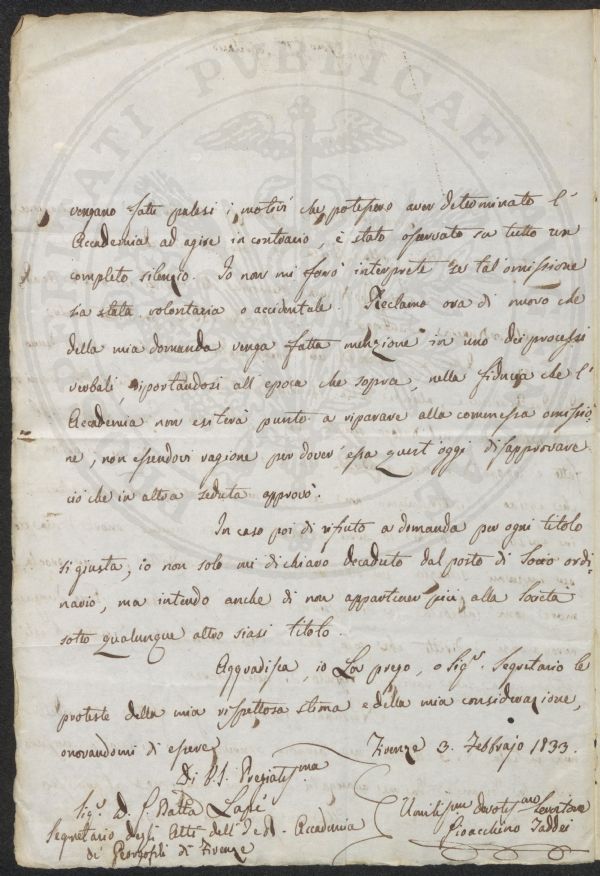 PROSPERITATI PUBLICAE
vengano fatti palesi i motivi che potessero aver determinato l'
Accademia ad agire in contrario, è stato osservato su tutto un
completo silenzio. Io non mi farò interprete se tal'omissione
sia stata volontaria o accidentale. Reclamo ora di nuovo che
della mia domanda venga fatta menzione in uno dei processi
verbali, riportandosi all'epoca che sopra, nella fiducia che l'
Accademia non esiterà punto a riparare alla commessa omissio=
ne, non essendovi ragione per dover essa quest'oggi disapprovare
ciò che in altra seduta approvò.
In caso poi di rifiuto a domanda per ogni titolo
sì giusta, io non solo mi dichiaro decaduto dal posto di Socio ordi=
nario, ma intendo anche di non appartener più alla Società
sotto qualunque altro siasi titolo.
Aggradisca, io La prego, o Sigr. Segretario le
proteste della mia rispettosa stima e della mia considerazione,
onorandomi di essere
Firenze 3. Febbrajo 1833.
Di V.S. Pregiatissma
Sigr. D. G. Batta
Segretario degli Atti dell' I e R. Accademia
de' Georgofili di Firenze
Umilissmo devotissmo Servitore
Gioacchino Taddei